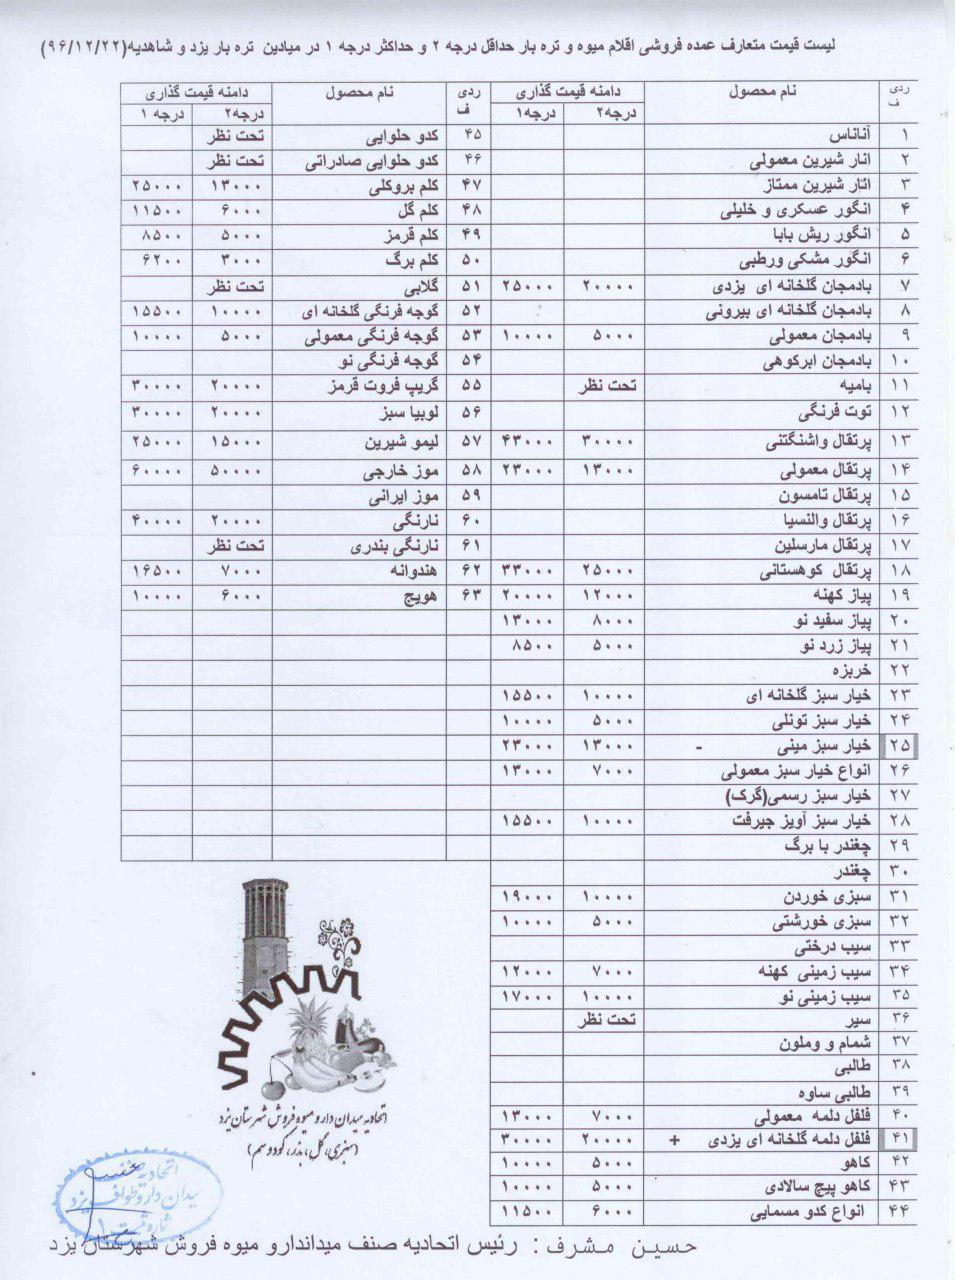 لیست قیمت متعارف عمده فروشی اقلام میوه و تره بار حداقل درجه ۲ و حداکثر درجه ۱ در میادین تره بار یزد و شاهدیه(۹۶/۱۲/۲۲)
ردیف نام محصول دامنه قیمت گذاری
درجه۲ درجه۱
۱ آناناس
۲ انار شیرین معمولی
۳ انار شیرین ممتاز
۴ انگور عسکری و خلیلی
۵ انگور ریش بابا
۶ انگور مشکی ورطبی
۷ بادمجان گلخانه ای یزدی ۲۰۰۰۰ ۲۵۰۰۰
۸ بادمجان گلخانه ای بیرونی
۹ بادمجان معمولی ۵۰۰۰ ۱۰۰۰۰
۱۰ بادمجان ابرکوهی
۱۱ بامیه تحت نظر
۱۲ توت فرنگی
۱۳ پرتقال واشنگتنی ۳۰۰۰۰ ۴۳۰۰۰
۱۴ پرتقال معمولی ۱۳۰۰۰ ۲۳۰۰۰
۱۵ پرتقال تامسون
۱۶ پرتقال والنسیا
۱۷ پرتقال مارسلین
۱۸ پرتقال کوهستانی ۲۵۰۰۰ ۳۳۰۰۰
۱۹ پیاز کهنه ۱۲۰۰۰ ۲۰۰۰۰
۲۰ پیاز سفید نو ۸۰۰۰ ۱۳۰۰۰
۲۱ پیاز زرد نو ۵۰۰۰ ۸۵۰۰
۲۲ خربزه
۲۳ خیار سبز گلخانه ای ۱۰۰۰۰ ۱۵۵۰۰
۲۴ خیار سبز تونلی ۵۰۰۰ ۱۰۰۰۰
۲۵ خیار سبز مینی - ۱۳۰۰۰ ۲۳۰۰۰
۲۶ انواع خیار سبز معمولی ۷۰۰۰ ۱۳۰۰۰
۲۷ خیار سبز رسمی(گرک)
۲۸ خیار سبز آویز جیرفت ۱۰۰۰۰ ۱۵۵۰۰
۲۹ چغندر با برگ
۳۰ چغندر
۳۱ سبزی خوردن ۱۰۰۰۰ ۱۹۰۰۰
۳۲ سبزی خورشتی ۵۰۰۰ ۱۰۰۰۰
۳۳ سیب درختی
۳۴ سیب زمینی کهنه ۷۰۰۰ ۱۲۰۰۰
۳۵ سیب زمینی نو ۱۰۰۰۰ ۱۷۰۰۰
۳۶ سیر تحت نظر
۳۷ شمام و وملون
۳۸ طالبی
۳۹ طالبی ساوه
۴۰ فلفل دلمه معمولی ۷۰۰۰ ۱۳۰۰۰
۴۱ فلفل دلمه گلخانه ای یزدی + ۲۰۰۰۰ ۳۰۰۰۰
۴۲ کاهو ۵۰۰۰ ۱۰۰۰۰
۴۳ کاهو پیچ سالادی ۵۰۰۰ ۱۰۰۰۰
۴۴ انواع کدو مسمایی ۶۰۰۰ ۱۱۵۰۰
ردیف نام محصول دامنه قیمت گذاری
درجه۲ درجه ۱
۴۵ کدو حلوایی تحت نظر
۴۶ کدو حلوایی صادراتی تحت نظر
۴۷ کلم بروکلی ۱۳۰۰۰ ۲۵۰۰۰
۴۸ کلم گل ۶۰۰۰ ۱۱۵۰۰
۴۹ کلم قرمز ۵۰۰۰ ۸۵۰۰
۵۰ کلم برگ ۳۰۰۰ ۶۲۰۰
۵۱ گلابی تحت نظر
۵۲ گوجه فرنگی گلخانه ای ۱۰۰۰۰ ۱۵۵۰۰
۵۳ گوجه فرنگی معمولی ۵۰۰۰ ۱۰۰۰۰
۵۴ گوجه فرنگی نو
۵۵ گریپ فروت قرمز ۲۰۰۰۰ ۳۰۰۰۰
۵۶ لوبیا سبز ۲۰۰۰۰ ۳۰۰۰۰
۵۷ لیمو شیرین ۱۵۰۰۰ ۲۵۰۰۰
۵۸ موز خارجی ۵۰۰۰۰ ۶۰۰۰۰
۵۹ موز ایرانی
۶۰ نارنگی ۲۰۰۰۰ ۴۰۰۰۰
۶۱ نارنگی بندری تحت نظر
۶۲ هندوانه ۷۰۰۰ ۱۶۵۰۰
۶۳ هویج ۶۰۰۰ ۱۰۰۰۰
اتحادیه میدان دار و میوه فروش شهرستان یزد
(سبزی، گل، بذر، کود و سم)
اتحادیه صنف
میدان دار و طواف یزد
شماره ثبت ۱
حسین مشرف : رئیس اتحادیه صنف میداندارو میوه فروش شهرستان یزد